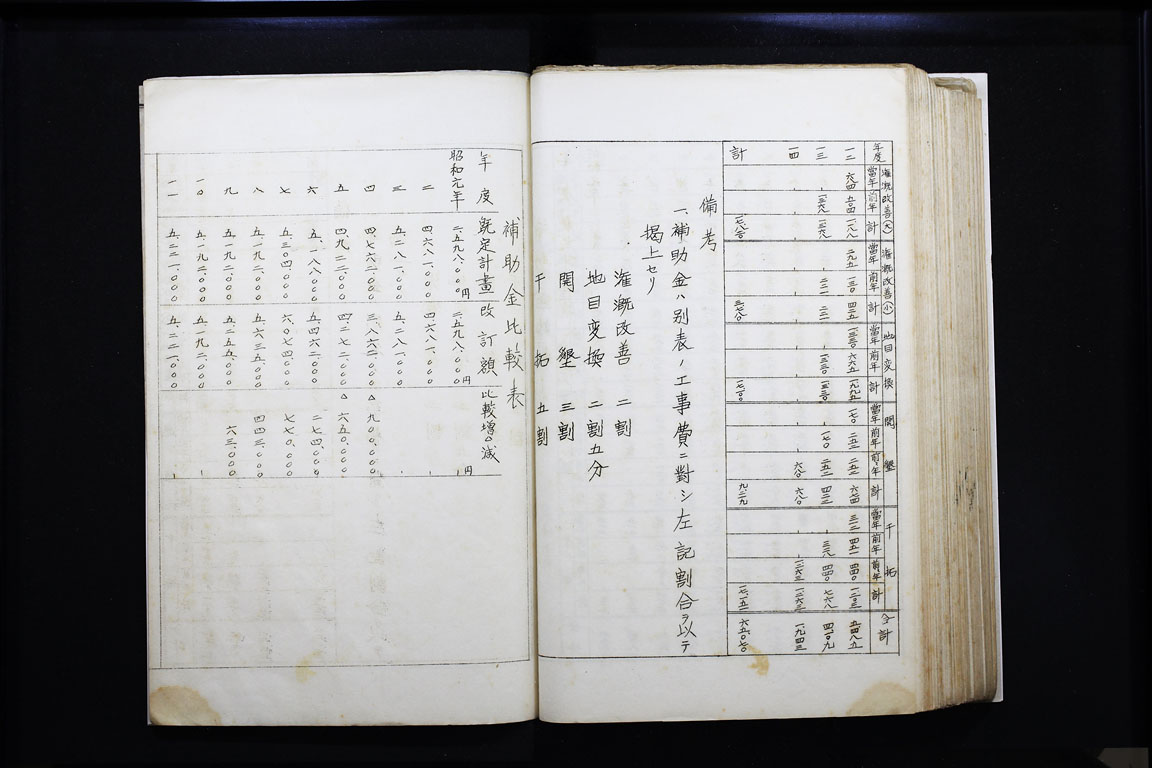 年度 灌漑改善(大) 當年 前年 計 灌漑改善(小) 當年 前年 計 地目変換 當年 前年 計 開墾 當年 前年 前々年 計 干拓 當年 前年 前々年 計 合計
一二 六八四 五〇四 一一八八 二九五 一三〇 四二五 一三三〇 六六五 一九九五 一七〇 二五二 二五二 六七四 三一二 四五一 四四〇 一二〇三 五四八五
一三 一三六八 一三六八 二二一 二二一 一三三〇 一三三〇 一七〇 二五二 四二二 三二八 四四〇 七六八 四一〇九
一四 六八〇 六八〇 一二六三 一二六三 一九四三
計 一七八一〇 三七八〇 一七一〇〇 九二二九 一七一五一 六五〇七〇
備考
一、補助金ハ別表ノ工事費ニ對シ左記割合ヲ以テ
掲上セリ
灌漑改善 二割
地目変換 二割五分
開墾 三割
干拓 五割
補助金比較表
年度 既定計畫 改訂額 比較増△減
昭和元年 二.五九八.〇〇〇円 二.五九八.〇〇〇円 円
二 四.六八一.〇〇〇 四.六八一.〇〇〇
三 五.二八一.〇〇〇 五.二八一.〇〇〇
四 四.七六二.〇〇〇 三.八六二.〇〇〇 △ 九〇〇.〇〇〇
五 四.九二二.〇〇〇 四.二七二.〇〇〇 △ 六五〇.〇〇〇
六 五.一八八.〇〇〇 五.四六二.〇〇〇 二七四.〇〇〇
七 五.三〇四.〇〇〇 六.〇七四.〇〇〇 七七〇.〇〇〇
八 五.一九二.〇〇〇 五.六三五.〇〇〇 四四三.〇〇〇
九 五.一九二.〇〇〇 五.二五五.〇〇〇 六三.〇〇〇
一〇 五.一九二.〇〇〇 五.一九二.〇〇〇
一一 五.二二一.〇〇〇 五.二二一.〇〇〇